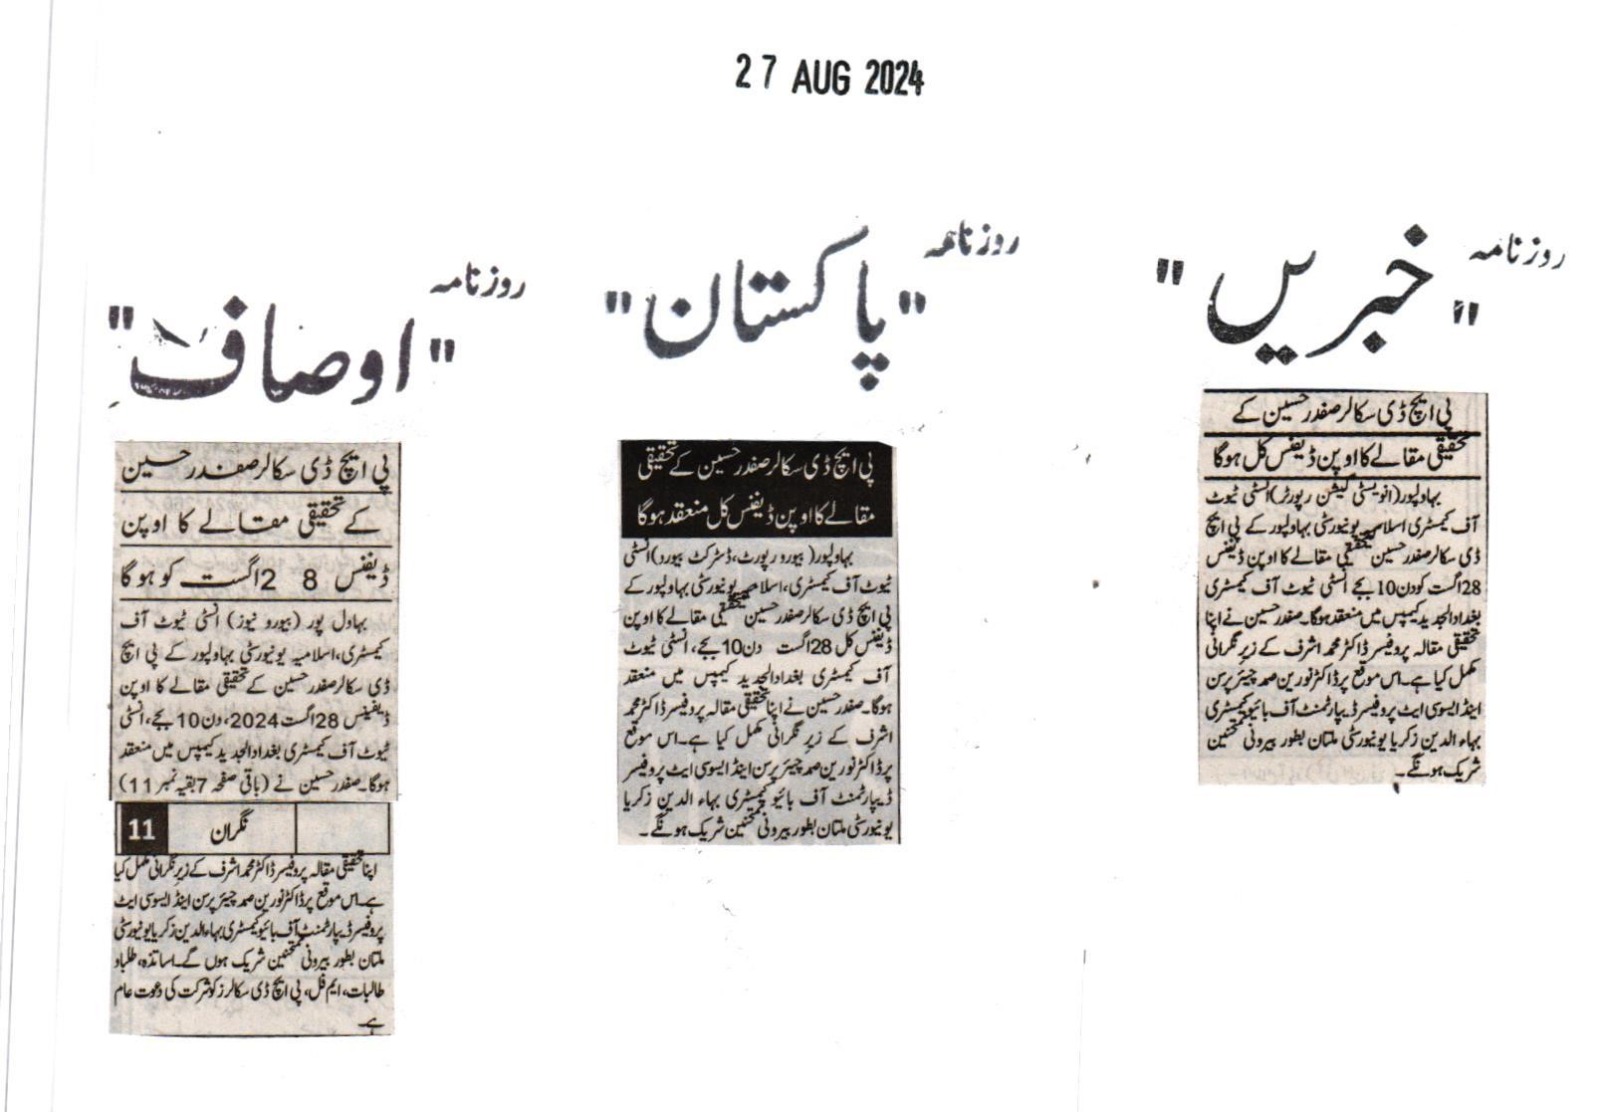 27 AUG 2024
روزنامہ
"خبریں"
پی ایچ ڈی سکالر صفدر حسین کے
تحقیقی مقالے کا اوپن ڈیفنس کل ہوگا
بہاولپور (انویسٹی گیشن رپورٹر) انسٹی ٹیوٹ
آف کیمسٹری اسلامیہ یونیورسٹی بہاولپور کے پی ایچ
ڈی سکالر صفدر حسین تحقیقی مقالے کا اوپن ڈیفنس
28 اگست کو دن 10 بجے انسٹی ٹیوٹ آف کیمسٹری
بغداد الجدید کیمپس میں منعقد ہوگا۔ صفدر حسین نے اپنا
تحقیقی مقالہ پروفیسر ڈاکٹر محمد اشرف کے زیر نگرانی
مکمل کیا ہے۔ اس موقع پر ڈاکٹر نورین صمد چیئر پرسن
اینڈ ایسوسی ایٹ پروفیسر ڈیپارٹمنٹ آف بائیو کیمسٹری
بہاء الدین زکریا یونیورسٹی ملتان بطور بیرونی ممتحنین
شریک ہونگے۔
روزنامہ
"پاکستان"
پی ایچ ڈی سکالر صفدر حسین کے تحقیقی
مقالے کا اوپن ڈیفنس کل منعقد ہوگا
بہاولپور (بیورو رپورٹ، ڈسٹرکٹ بیورو) انسٹی
ٹیوٹ آف کیمسٹری، اسلامیہ یونیورسٹی بہاولپور کے
پی ایچ ڈی سکالر صفدر حسین تحقیقی مقالے کا اوپن
ڈیفنس کل 28 اگست دن 10 بجے، انسٹی ٹیوٹ
آف کیمسٹری بغداد الجدید کیمپس میں منعقد
ہوگا۔ صفدر حسین نے اپنا تحقیقی مقالہ پروفیسر ڈاکٹر محمد
اشرف کے زیر نگرانی مکمل کیا ہے۔ اس موقع
پر ڈاکٹر نورین صمد چیئر پرسن اینڈ ایسوسی ایٹ پروفیسر
ڈیپارٹمنٹ آف بائیو کیمسٹری بہاء الدین زکریا
یونیورسٹی ملتان بطور بیرونی ممتحنین شریک ہونگے۔
روزنامہ
"اوصاف"
پی ایچ ڈی سکالر صفدر حسین
کے تحقیقی مقالے کا اوپن
ڈیفنس 28 اگست کو ہوگا
بہاول پور (بیورو نیوز) انسٹی ٹیوٹ آف
کیمسٹری، اسلامیہ یونیورسٹی بہاولپور کے پی ایچ
ڈی سکالر صفدر حسین کے تحقیقی مقالے کا اوپن
ڈیفینس 28 اگست 2024، دن 10 بجے، انسٹی
ٹیوٹ آف کیمسٹری بغداد الجدید کیمپس میں منعقد
ہوگا۔ صفدر حسین نے (باقی صفحہ 7 بقیہ نمبر 11)
نگران 11
اپنا تحقیقی مقالہ پروفیسر ڈاکٹر محمد اشرف کے زیر نگرانی مکمل کیا
ہے۔ اس موقع پر ڈاکٹر نورین صمد چیئر پرسن اینڈ ایسوسی ایٹ
پروفیسر ڈیپارٹمنٹ آف بائیو کیمسٹری بہاء الدین زکریا یونیورسٹی
ملتان بطور بیرونی ممتحنین شریک ہوں گے۔ اساتذہ، طلباء و
طالبات، ایم فل، پی ایچ ڈی سکالرز کو شرکت کی دعوت عام
ہے۔